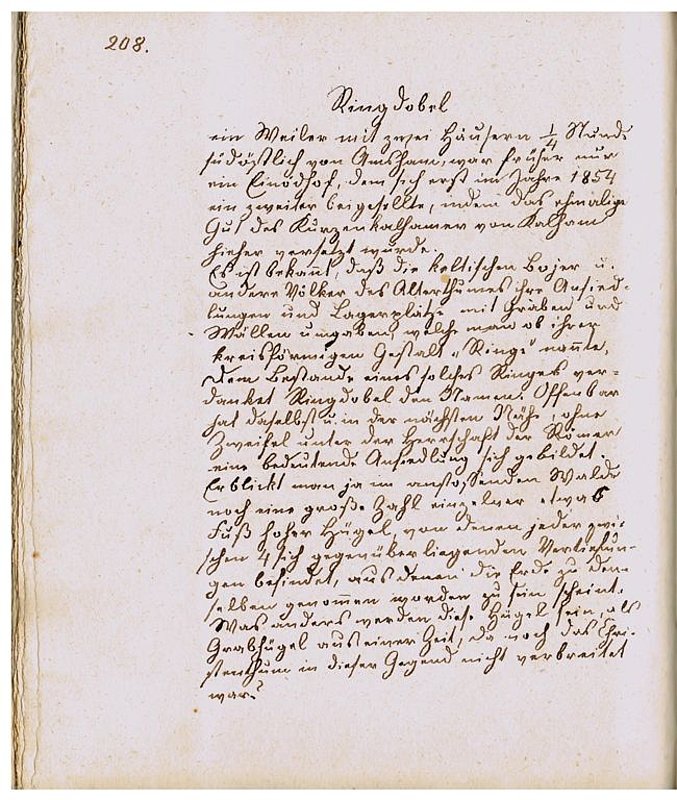 208.
Ringdobel
ein Weiler mit zwei Häusern 1/4 Stunde
südöstlich von Amsham, war früher nur
ein Einödhof, dem sich erst im Jahre 1854
ein zweiter beigesellte, indem das ehmalige
Gut des Kurzenkalhamer von Kalham
hieher versetzt wurde.
Es ist bekannt, daß die keltischen Bojer u.
andere Völker des Alterthumes ihre Ansied-
lungen und Lagerplätze mit Gräben und
Wällen umgaben, welche man ob ihrer
kreisförmigen Gestalt „Ringe" nannte.
Dem Bestande eines solches Ringes ver=
danket Ringdobel den Namen. Offenbar
hat daselbst u. in der nächsten Nähe, ohne
Zweifel unter der Herrschaft der Römer
eine bedeutende Ansiedlung sich gebildet.
Erblickt man ja im anstossenden Walde
noch eine große Zahl einzelner etwa 6
Fuß hoher Hügel, von denen jeder zwi-
schen 4 sich gegenüberliegenden Vertiefun-
gen befindet, aus denen die Erde zu den-
selben genommen worden zu sein scheint.
Was anders werden diese Hügel sein, als
Grabhügel aus einer Zeit, da noch das Chri-
stenthum in dieser Gegend nicht verbreitet
war?